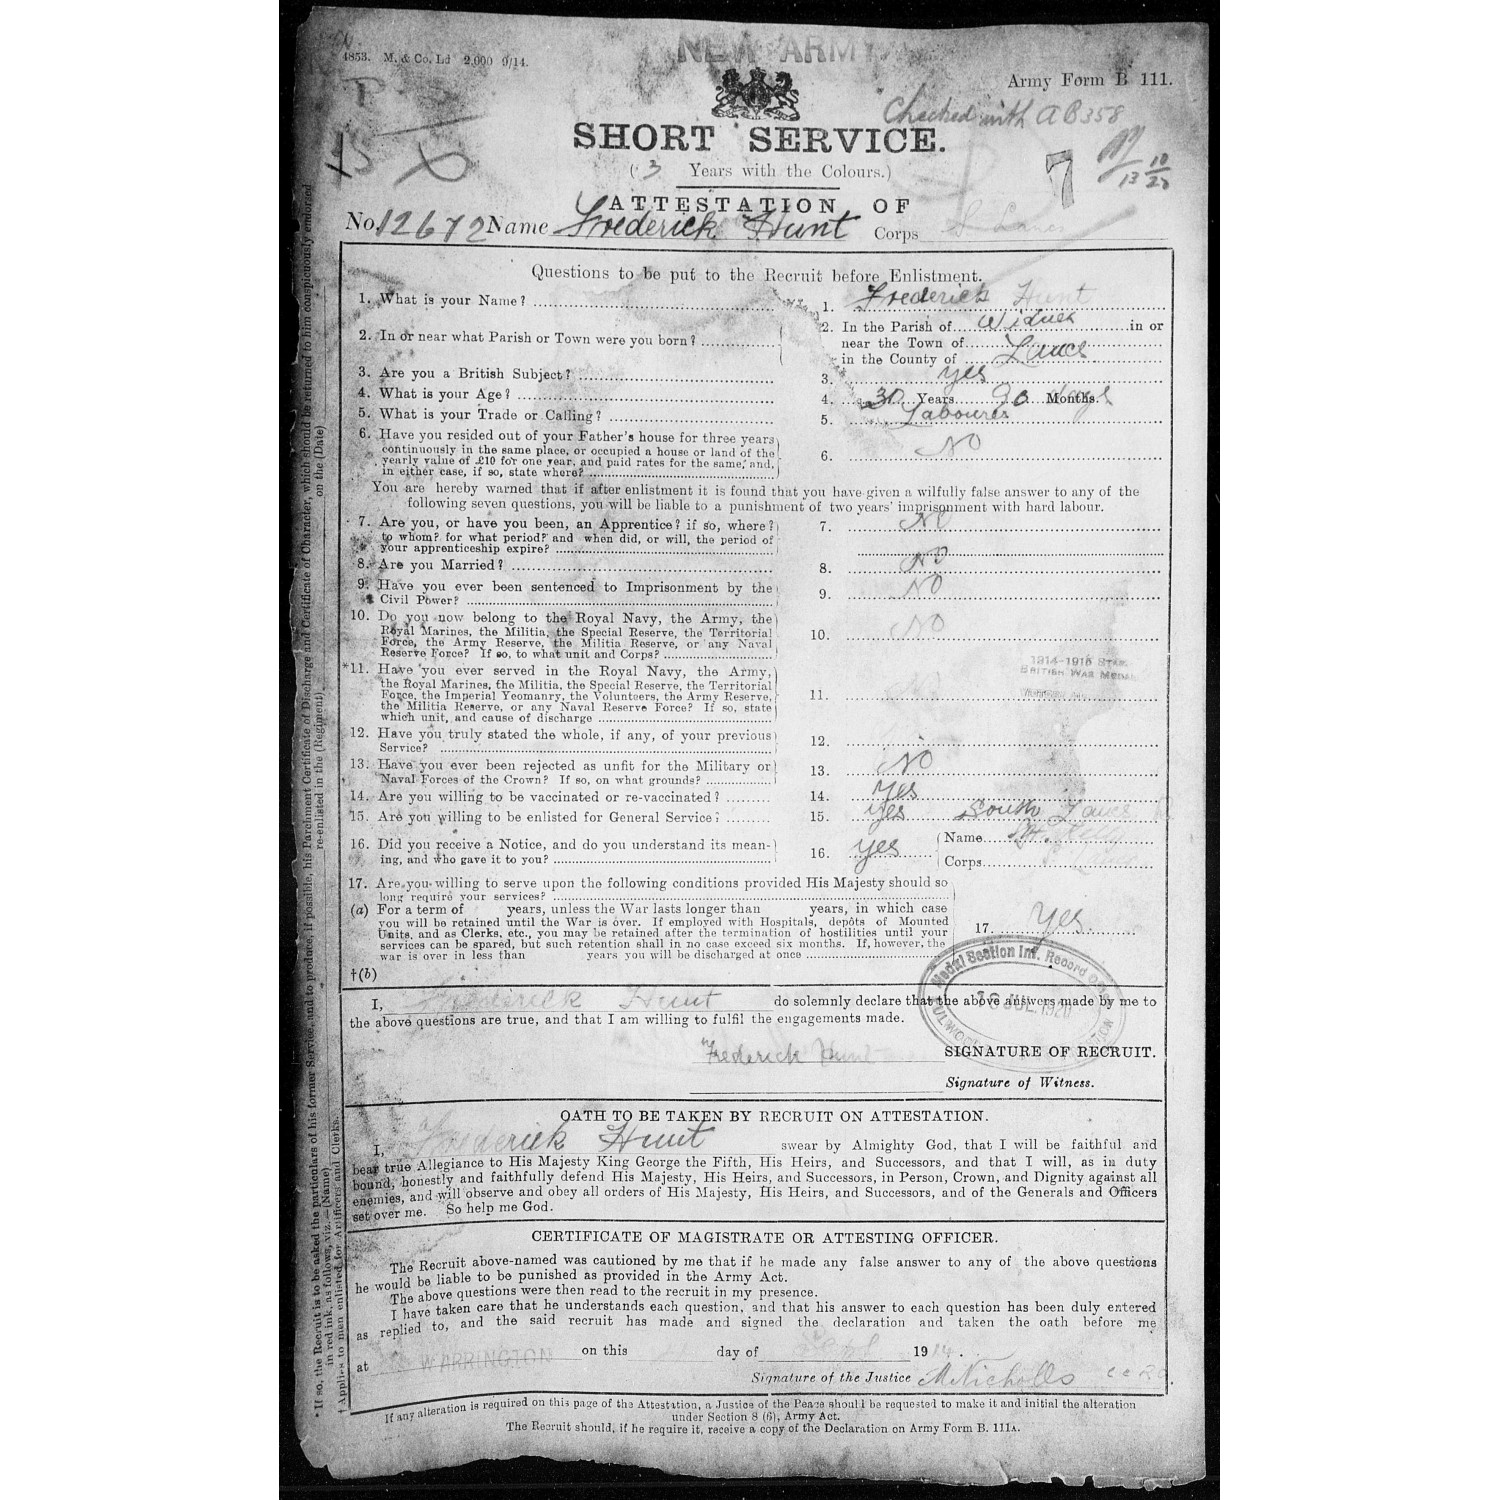 NEW ARMY
4853. M. & Co. Ld 2,000 9/14.
Army Form B 111.
Checked with AB358
SHORT SERVICE.
(3 Years with the Colours.)
7
13 10/20
ATTESTATION OF
No. 12672 Name Frederick Hunt Corps S Lancs
Questions to be put to the Recruit before Enlistment.
1. What is your Name? 1. Frederick Hunt
2. In or near what Parish or Town were you born? 2. In the Parish of Widnes in or
near the Town of
in the County of Lancs
3. Are you a British Subject? 3. yes
4. What is your Age? 4. 30 Years 90 Months. days
5. What is your Trade or Calling? 5. Labourer
6. Have you resided out of your Father's house for three years
continuously in the same place, or occupied a house or land of the
yearly value of £10 for one year, and paid rates for the same, and,
in either case, if so, state where? 6. No
You are hereby warned that if after enlistment it is found that you have given a wilfully false answer to any of the
following seven questions, you will be liable to a punishment of two years' imprisonment with hard labour.
7. Are you, or have you been, an Apprentice? if so, where? 7. No
to whom? for what period? and when did, or will, the period of
your apprenticeship expire?
8. Are you Married? 8. No
9. Have you ever been sentenced to Imprisonment by the
Civil Power? 9. No
10. Do you now belong to the Royal Navy, the Army, the
Royal Marines, the Militia, the Special Reserve, the Territorial
Force, the Army Reserve, the Militia Reserve, or any Naval
Reserve Force? If so, to what unit and Corps? 10. No
1914-1915 STAR
BRITISH WAR MEDAL
*11. Have you ever served in the Royal Navy, the Army,
the Royal Marines, the Militia, the Special Reserve, the Territorial
Force, the Imperial Yeomanry, the Volunteers, the Army Reserve,
the Militia Reserve, or any Naval Reserve Force? If so, state
which unit, and cause of discharge 11.
12. Have you truly stated the whole, if any, of your previous
Service? 12.
13. Have you ever been rejected as unfit for the Military or
Naval Forces of the Crown? If so, on what grounds? 13. No
14. Are you willing to be vaccinated or re-vaccinated? 14. Yes
15. Are you willing to be enlisted for General Service? 15. yes South Lancs R
16. Did you receive a Notice, and do you understand its mean-
ing, and who gave it to you? 16. yes Name Kelly
Corps S. Lancs
17. Are you willing to serve upon the following conditions provided His Majesty should so
long require your services?
(a) For a term of years, unless the War lasts longer than years, in which case
you will be retained until the War is over. If employed with Hospitals, depôts of Mounted
Units, and as Clerks, etc., you may be retained after the termination of hostilities until your
services can be spared, but such retention shall in no case exceed six months. If, however, the
war is over in less than years you will be discharged at once
17. Yes.
†(b)
Medal Section Inf. Record Office
JUL. 1920
I, Frederick Hunt do solemnly declare that the above answers made by me to
the above questions are true, and that I am willing to fulfil the engagements made.
Frederick Hunt SIGNATURE OF RECRUIT.
Signature of Witness.
OATH TO BE TAKEN BY RECRUIT ON ATTESTATION.
I, Frederick Hunt swear by Almighty God, that I will be faithful and
bear true Allegiance to His Majesty King George the Fifth, His Heirs, and Successors, and that I will, as in duty
bound, honestly and faithfully defend His Majesty, His Heirs, and Successors, in Person, Crown, and Dignity against all
enemies, and will observe and obey all orders of His Majesty, His Heirs, and Successors, and of the Generals and Officers
set over me. So help me God.
CERTIFICATE OF MAGISTRATE OR ATTESTING OFFICER.
The Recruit above-named was cautioned by me that if he made any false answer to any of the above questions
he would be liable to be punished as provided in the Army Act.
The above questions were then read to the recruit in my presence.
I have taken care that he understands each question, and that his answer to each question has been duly entered
as replied to, and the said recruit has made and signed the declaration and taken the oath before me
at WARRINGTON on this day of Sept 1914.
Signature of the Justice M Nicholls
If any alteration is required on this page of the Attestation, a Justice of the Peace should be requested to make it and initial the alteration
under Section 8 (6), Army Act.
The Recruit should, if he require it, receive a copy of the Declaration on Army Form B. 111A.
* If so, the Recruit is to be asked the particulars of his former Service, and to produce, if possible, his Parchment Certificate of Discharge and Certificate of Character, which should be returned to him conspicuously endorsed
in red ink, as follows, viz.—(Name) re-enlisted in the (Regiment) on the (Date)
† Applies to men enlisted for Artificers and Clerks.